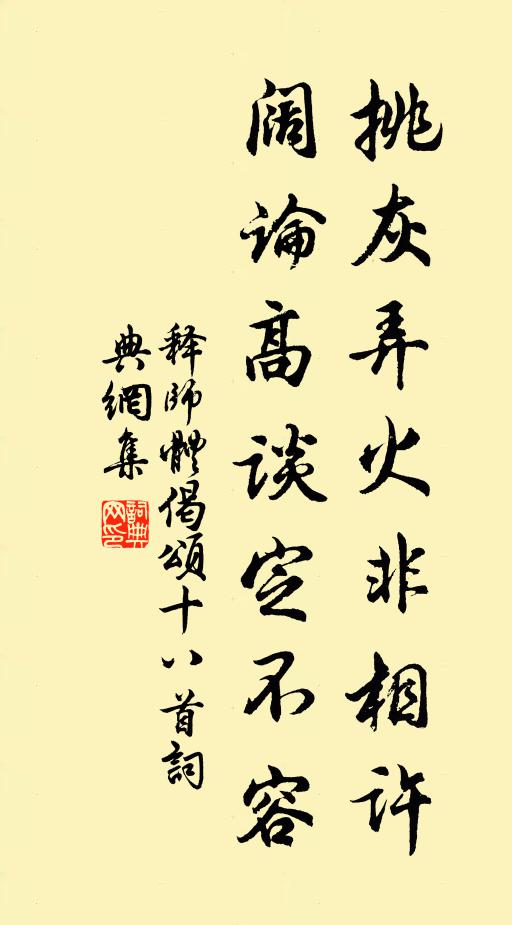 挑灰弄火非相许
阔论高谈定不容
释师體偈颂十八首詞
典網集
詞典
网印